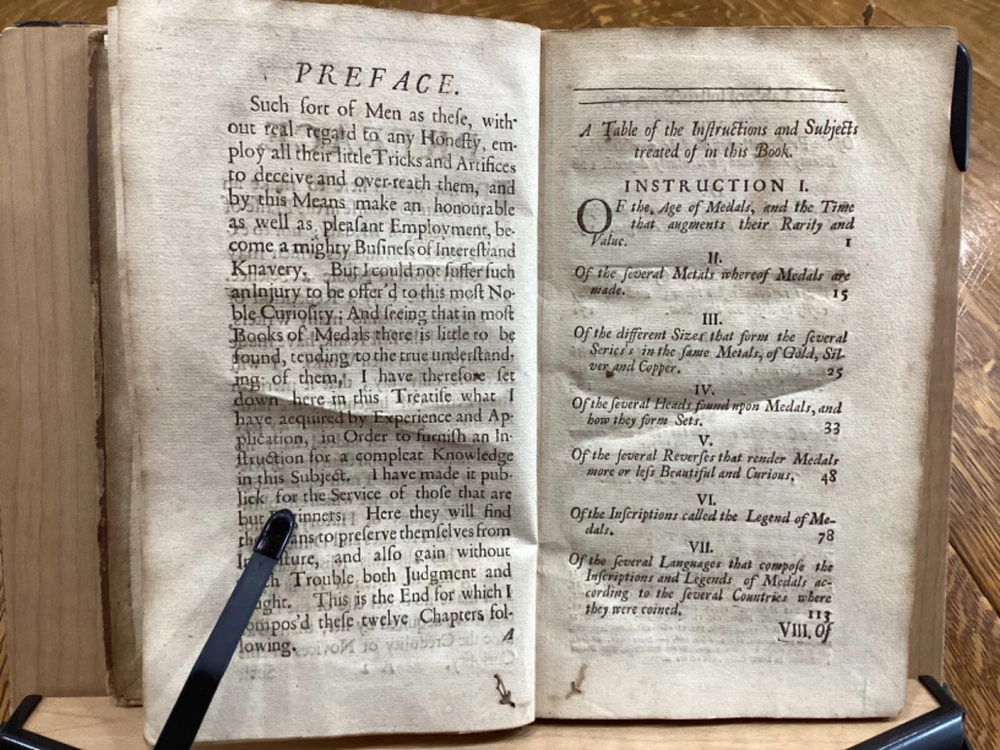 PREFACE.
Such ſort of Men as theſe, with-
out real regard to any Honeſty, em-
ploy all their little Tricks and Artifices
to deceive and over-reach them, and
by this Means make an honourable
as well as pleaſant Employment, be-
come a mighty Buſineſs of Intereſt and
Knavery. But I could not ſuffer ſuch
an Injury to be offer'd to this moſt No-
ble Curioſity: And ſeeing that in moſt
Books of Medals there is little to be
found, tending to the true underſtand-
ing of them, I have therefore ſet
down here in this Treatiſe what I
have acquired by Experience and Ap-
plication, in Order to furniſh an In-
ſtruction for a compleat Knowledge
in this Subject. I have made it pub-
lick for the Service of thoſe that are
but Here they will find
to preſerve themſelves from
and alſo gain without
Trouble both Judgment and
This is the End for which I
compos'd theſe twelve Chapters fol-
lowing.
A
A Table of the Inſtructions and Subjects
treated of in this Book.
INSTRUCTION I.
OF the Age of Medals, and the Time
that augments their Rarity and
Value. 1
II.
Of the ſeveral Metals whereof Medals are
made. 15
III.
Of the different Sizes that form the ſeveral
Series's in the ſame Metals, of Gold, Sil-
ver and Copper. 25
IV.
Of the ſeveral Heads found upon Medals, and
how they form Sets. 33
V.
Of the ſeveral Reverſes that render Medals
more or leſs Beautiful and Curious. 48
VI.
Of the Inſcriptions called the Legend of Me-
dals. 78
VII.
Of the ſeveral Languages that compoſe the
Inſcriptions and Legends of Medals ac-
cording to the ſeveral Countries where
they were coined. 113
VIII. Of